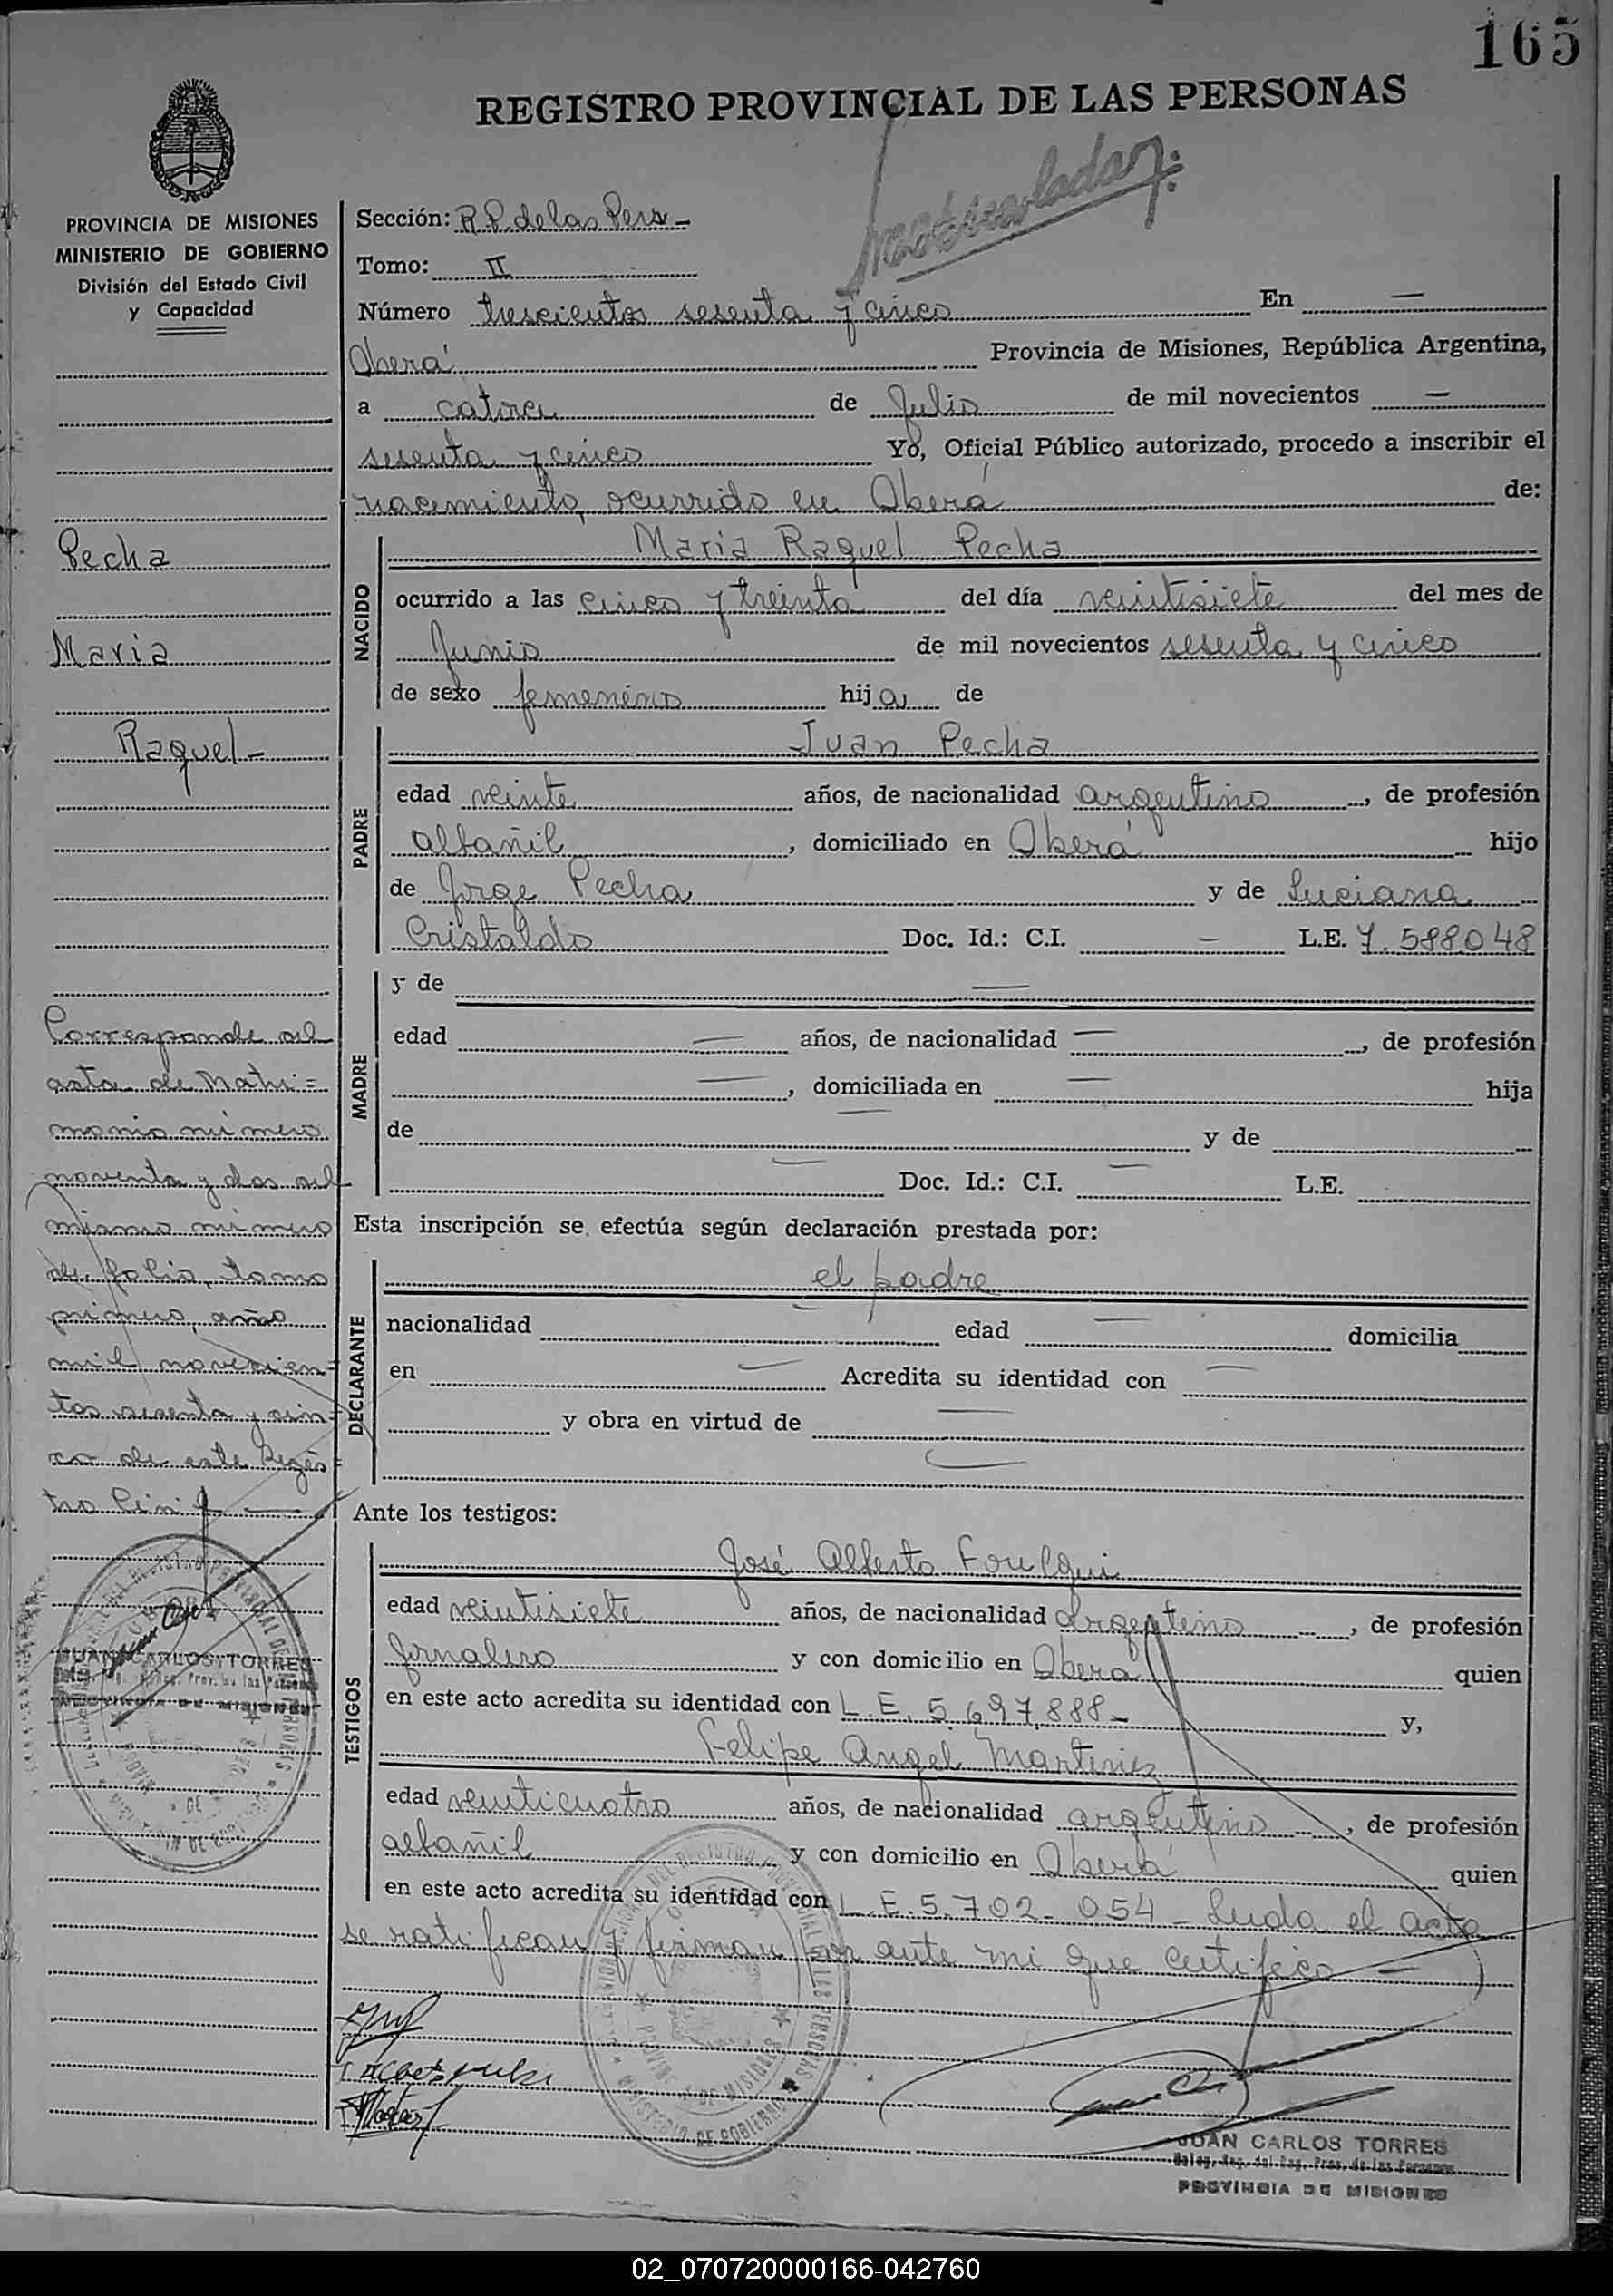 165
REGISTRO PROVINCIAL DE LAS PERSONAS
PROVINCIA DE MISIONES
MINISTERIO DE GOBIERNO
División del Estado Civil
y Capacidad
Sección: R P. de las Pers -
Tomo: II
Número trescientos sesenta y cinco En —
Oberá Provincia de Misiones, República Argentina,
a catorce de Julio de mil novecientos —
sesenta y cinco Yo, Oficial Público autorizado, procedo a inscribir el
nacimiento, ocurrido en Oberá de:
Pecha
Maria
Raquel -
NACIDO
Maria Raquel Pecha
ocurrido a las cinco y treinta del día veintisiete del mes de
Junio de mil novecientos sesenta y cinco
de sexo femenino hija de
PADRE
Juan Pecha
edad veinte años, de nacionalidad argentino, de profesión
albañil, domiciliado en Oberá hijo
de Jorge Pecha y de Luciana
Cristaldo Doc. Id.: C.I. — L.E. 7.588048
MADRE
y de —
edad — años, de nacionalidad —, de profesión
—, domiciliada en — hija
de — y de
— Doc. Id.: C.I. — L.E.
Corresponde al
acta de Matri=
monio número
noventa y dos al
mismo número
de folio, tomo
primero, año
mil novecien=
tos sesenta y cin=
co de este Regis=
tro Civil —
Esta inscripción se efectúa según declaración prestada por:
DECLARANTE
el padre
nacionalidad — edad — domicilia
en — Acredita su identidad con —
y obra en virtud de —
Ante los testigos:
TESTIGOS
José Alberto Foulqui
edad veintisiete años, de nacionalidad argentino, de profesión
jornalero y con domicilio en Oberá quien
en este acto acredita su identidad con L.E. 5.697.888- y,
Felipe Angel Martinez
edad veinticuatro años, de nacionalidad argentino, de profesión
albañil y con domicilio en Oberá quien
en este acto acredita su identidad con L.E. 5.702-054- Leida el acta
se ratifican y firman por ante mi que certifico —
JUAN CARLOS TORRES
PROVINCIA DE MISIONES
JUAN CARLOS TORRES
Deleg. Reg. del Reg. Prov. de las Personas
PROVINCIA DE MISIONES
02_070720000166-042760